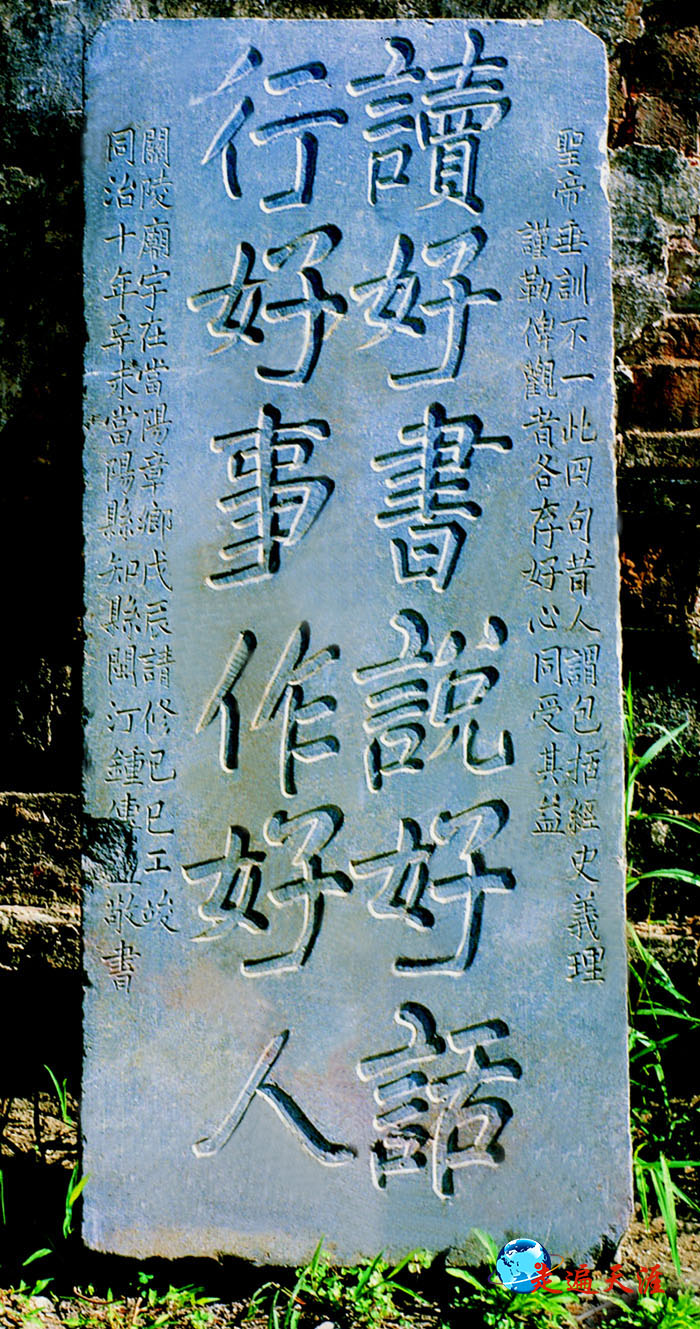 聖帝垂訓不一此四句昔人謂包括經史義理
謹勒俾觀者各存好心同受其益
讀好書說好話
行好事作好人
關陵廟宇在當陽章鄉戊辰請修己巳工竣
同治十年辛未當陽縣知縣閩汀鍾傳敬書
走遍天涯